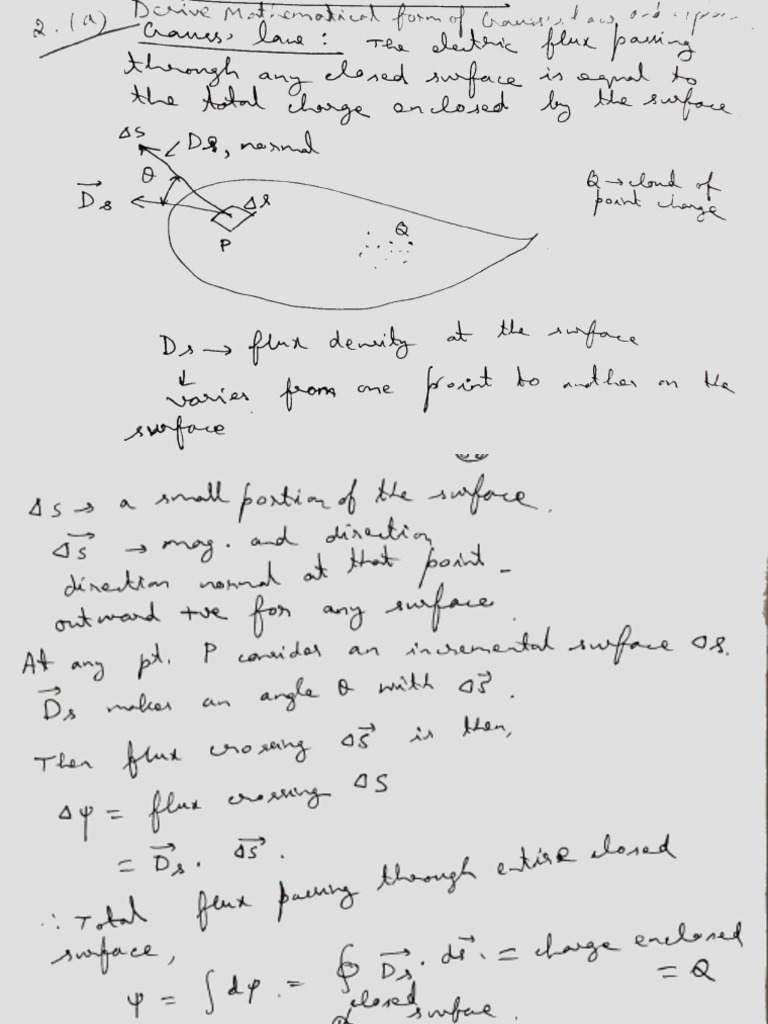 2. (a) Derive Mathematical form of Gauss's Law and
Gauss's law : The electric flux passing
through any closed surface is equal to
the total charge enclosed by the surface
ΔS
Ds, normal
θ
D⃗s
ΔS
P
Q
Q → cloud of
point charge
Ds → flux density at the surface
↓
varies from one point to another on the
surface
ΔS → a small portion of the surface.
Δ⃗S → mag. and direction
direction normal at that point -
outward +ve for any surface
At any pt. P consider an incremental surface ΔS.
D⃗s makes an angle θ with ΔS⃗.
Then flux crossing ΔS⃗ is then,
Δψ = flux crossing ΔS
= D⃗s . ΔS⃗ .
∴ Total flux passing through entire closed
surface,
ψ = ∫dψ . = ∮ D⃗s . ds⃗ . = charge enclosed
closed surface . = Q